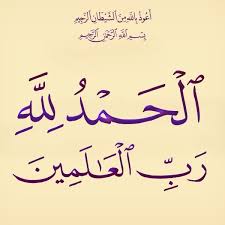 أَعُوذُ بِاللَّهِ مِنَ الشَّيْطَانِ الرَّجِيمِ
بِسْمِ اللَّهِ الرَّحْمَٰنِ الرَّحِيمِ
اَلْحَمْدُ لِلَّهِ
رَبِّ الْعَالَمِينَ